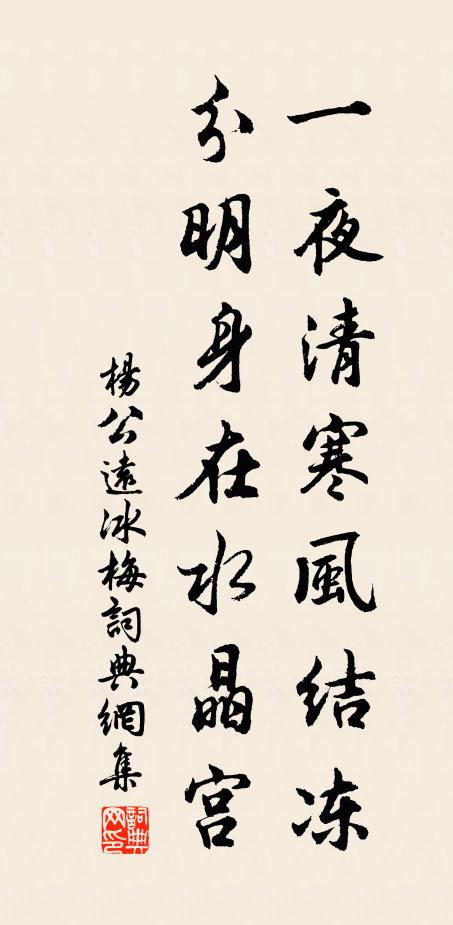 一夜清寒風结冻
分明身在水晶宫
楊公遠冰梅詞典網集
詞典网印